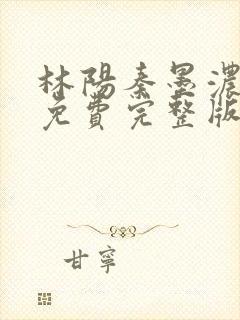 林陽秦墨濃
免費完整版
甘寧